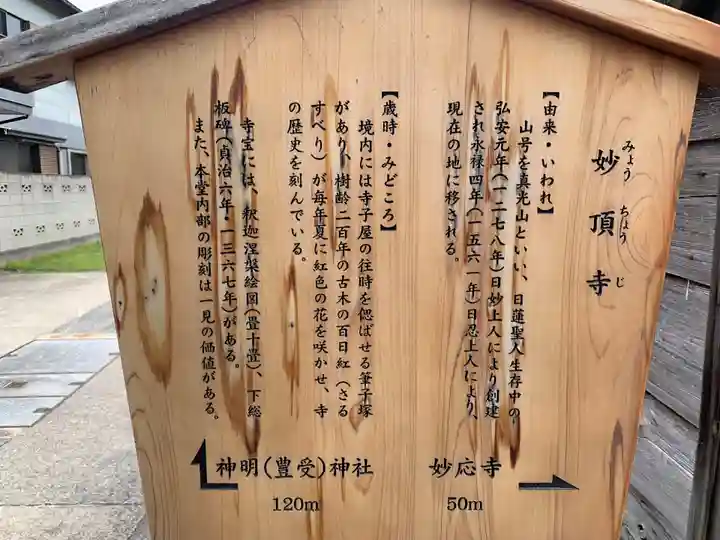 みょう ちょう じ
妙頂寺
【由来・いわれ】
山号を真光山といい、日蓮聖人生存中の
弘安元年(一二七八年)日妙上人により創建
され永禄四年(一五六一年)日忍上人により、
現在の地に移される。
【歳時・みどころ】
境内には寺子屋の往時を偲ばせる筆子塚
があり、樹齢二百年の古木の百日紅(さる
すべり)が毎年夏に紅色の花を咲かせ、寺
の歴史を刻んでいる。
寺宝には、釈迦涅槃絵図(畳十畳)、下総
板碑(貞治六年・一三六七年)がある。
また、本堂内部の彫刻は一見の価値がある。
神明(豊受)神社
120m
妙応寺
50m